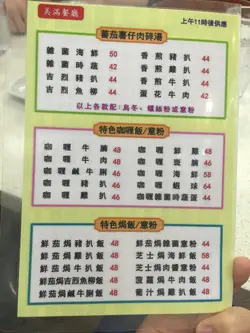 美滿餐廳
上午11時後供應
蕃茄薯仔肉碎湯
雜菌海鮮 50 香煎豬扒 44
雜菌時蔬 44 香煎雞扒 44
吉烈豬扒 44 香煎牛扒 44
吉烈魚柳 44 蛋花牛肉 42
以上各款配：烏冬、螺絲粉或意粉
特色咖喱飯/意粉
咖喱牛腩 48 咖喱雞扒 48
咖喱牛脷 48 咖喱斑腩 48
咖喱鹹牛脷 48 咖喱海鮮 58
咖喱豬扒 48 咖喱蝦球 64
咖喱牛扒 48 咖喱雜菌時蔬 44
特色焗飯/意粉
鮮茄焗豬扒飯 48 鮮茄焗雜菌意粉 44
鮮茄焗雞扒飯 48 芝士焗海鮮飯 58
鮮茄焗牛扒飯 48 芝士焗肉醬意粉 44
鮮茄焗吉烈魚柳 48 菠蘿焗牛肉飯 46
鮮茄焗鹹牛脷飯 48 葡汁焗雞扒飯 48